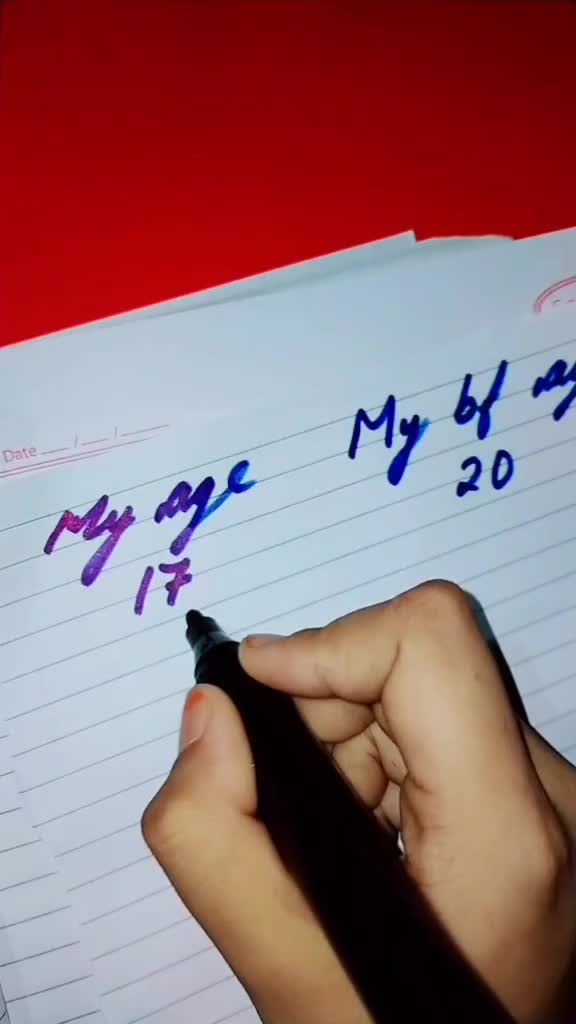 Date __/__/__
My age
17
My bf
20